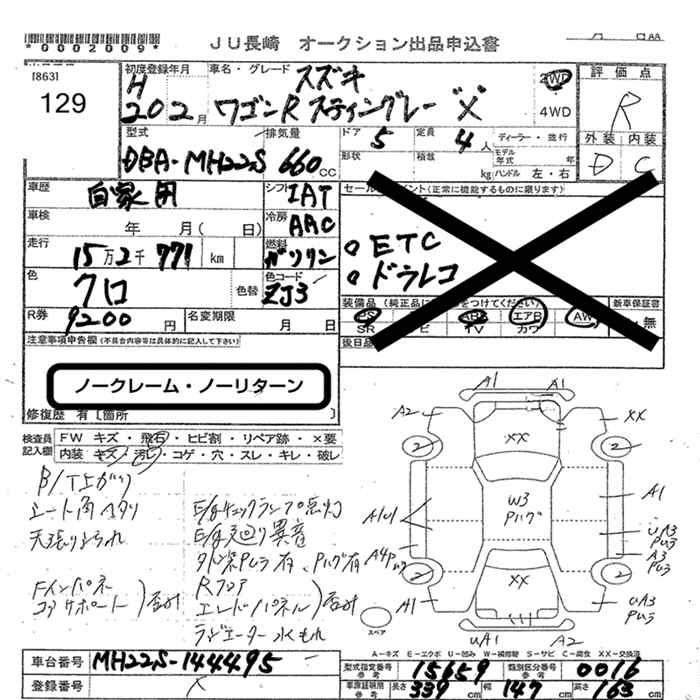 *0002009*
JU長崎 オークション出品申込書
[863]
129
初度登録年月
H
20 2月
車名・グレード
スズキ
ワゴンR スティングレー "X"
2WD
4WD
評価点
R
外装 内装
D C
型式
DBA-MH22S
排気量
660 CC
ドア
5
定員
4人
形状
積載
kg
ディーラー・並行
モデル年式 年
ハンドル 左・右
車歴
自家用
シフト
IAT
車検
年 月( 日)
冷房
AAC
走行
15万2千771 km
燃料
ガソリン
色
クロ
色替
色コード
ZJ3
R券
9200 円
名変期限
月 日
セールスポイント(正常に機能するものに限ります)
ETC
ドラレコ
装備品(純正品に○をつけてください)
新車保証書
PS
エアB
AW
SR
TV
カワ
無
後日品
注意事項申告欄(不具合内容等は具体的に記入して下さい)
ノークレーム・ノーリターン
修復歴 有[箇所
検査員
記入欄
FW キズ・飛石・ヒビ割・リペア跡・×要
内装 キズ・汚レ・コゲ・穴・スレ・キレ・破レ
シート角ヘタリ
E/gチェックランプ点灯
E/g廻り異音
Rフロア
エンドパネル
ラジエーター水もれ
A1 A1
A2 XX
XX
2 2
W3
Pハゲ
A1
A1
UA3
Pムラ
A3
Pムラ
2 2
XX
A1
UA3
Pムラ
スペア
UA1 A2
A-キズ E-エクボ U-凹み W-補修跡 S-サビ C-腐食 XX-交換済
車台番号
MH22S-144495
登録番号
型式指定番号
参考
15659
類別区分番号
参考
0016
車庫証明用
参考
長さ
339 cm
幅
147 cm
高さ
163 cm